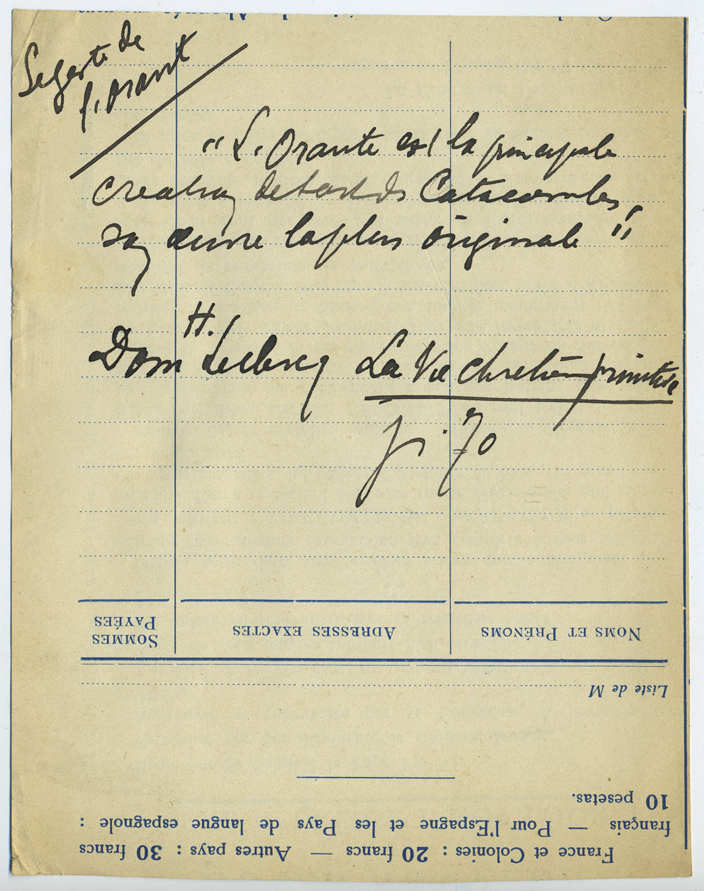 Le geste de
l'orant
"L'Orante est la principale
creation de l'art des Catacombes,
son œuvre la plus originale"
Dom H. Leclercq La Vie chretienne primitive
p. 70
NOMS ET PRÉNOMS
ADRESSES EXACTES
SOMMES
PAYÉES
Liste de M
10 pesetas.
français — Pour l'Espagne et les Pays de langue espagnole :
France et Colonies : 20 francs — Autres pays : 30 francs